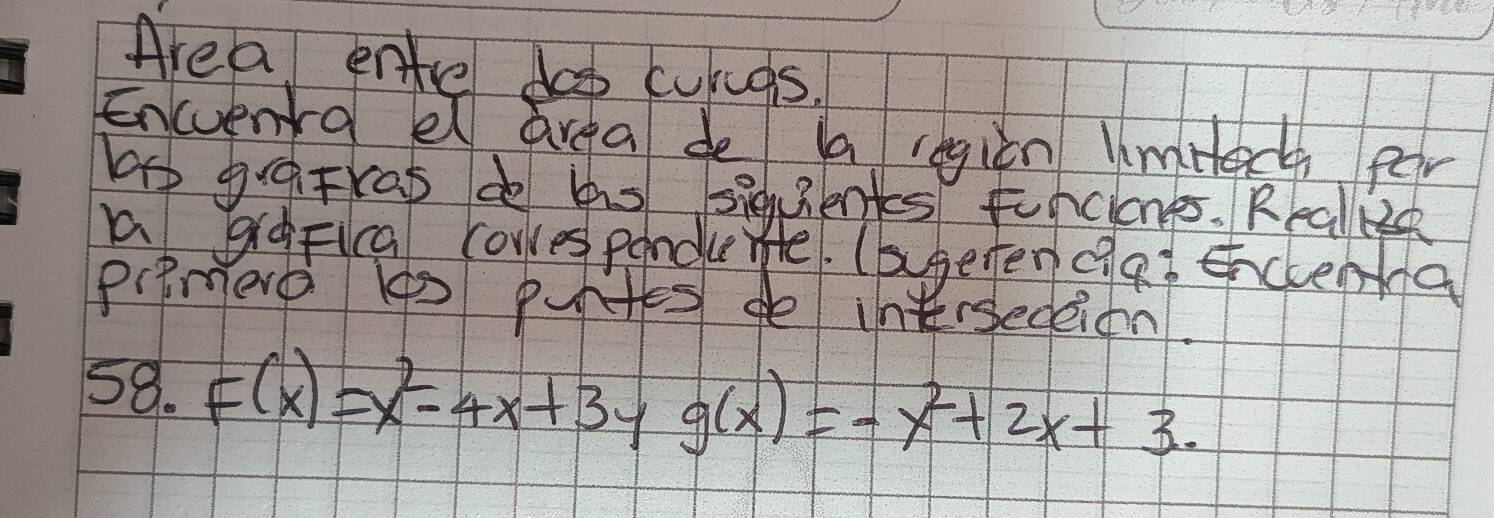 Área entre dos curvas.
Encuentra el área de la región limitada por
las gráficas de las siguientes funciones. Realiza
la gráfica correspondiente. (sugerencia: Encuentra
primero los puntos de intersección.
58. F(x)=x²-4x+3 y g(x)=-x²+2x+3.